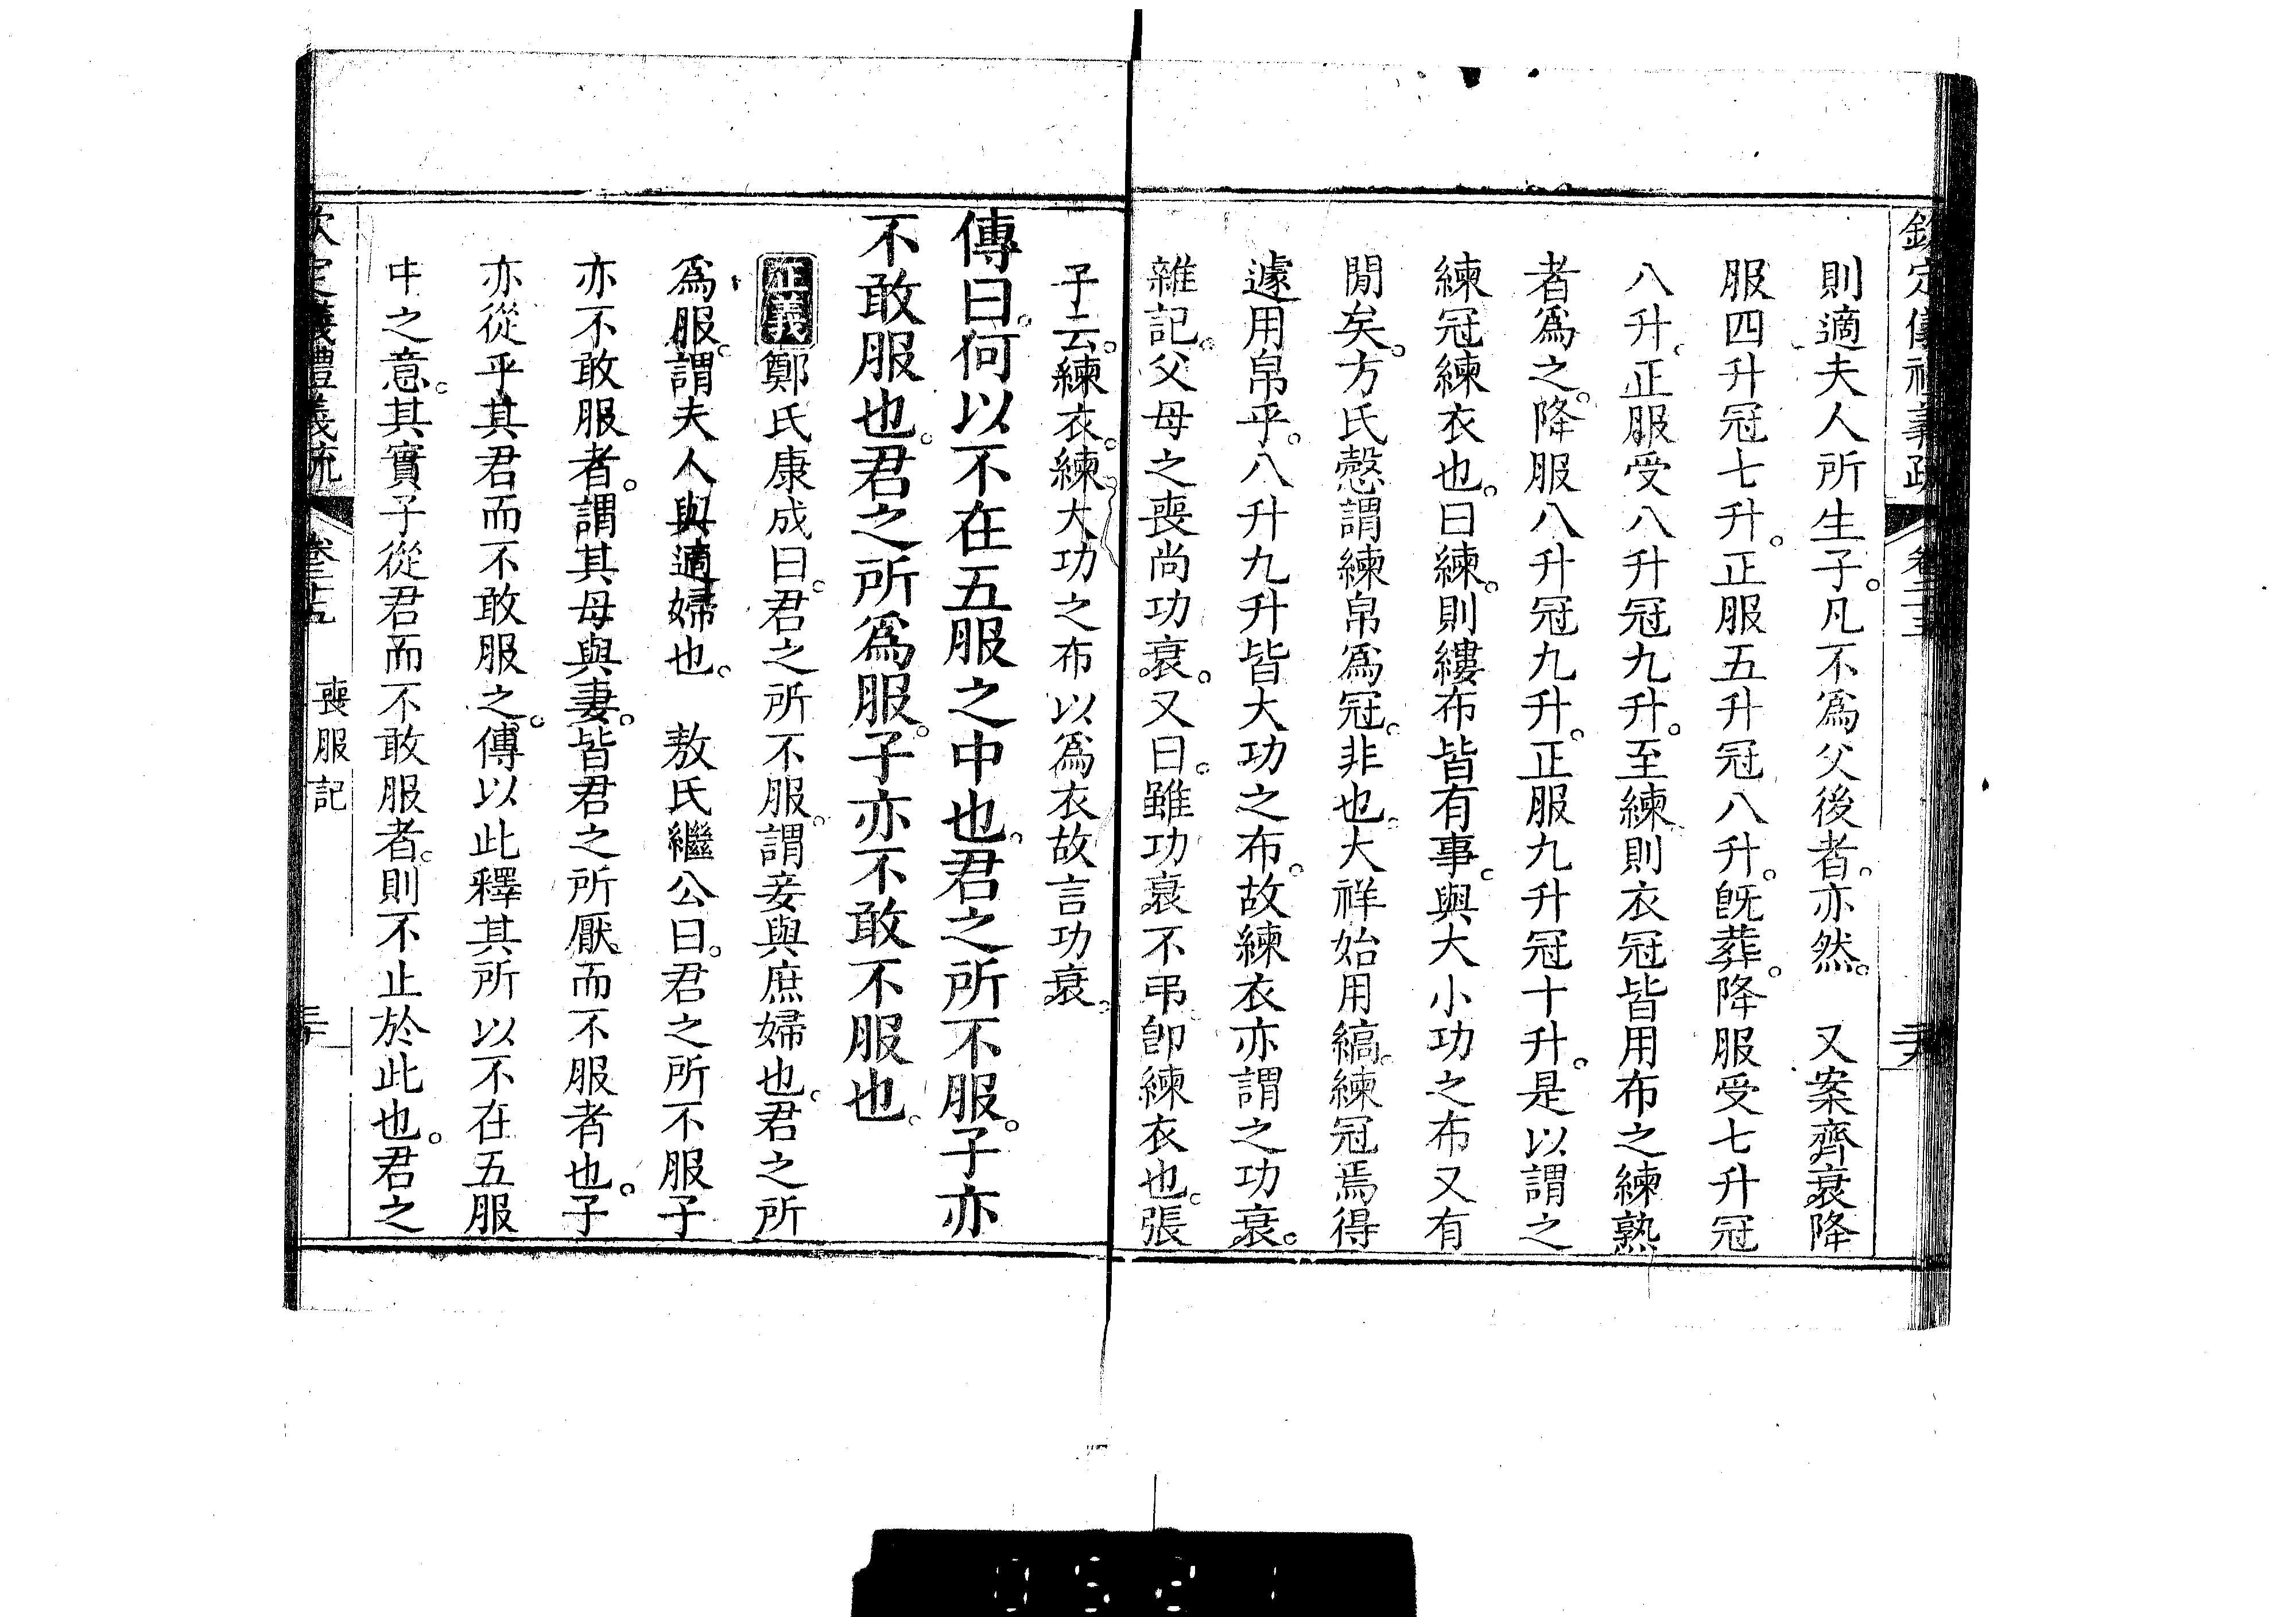 欽定儀禮義疏 卷二十五 二十九
則適夫人所生子。凡不爲父後者。亦然。　又案齊衰降
服四升冠七升。正服五升冠八升。旣葬。降服受七升冠
八升。正服受八升冠九升。至練則衣冠皆用布之練熟
者爲之。降服八升冠九升。正服九升冠十升。是以謂之
練冠練衣也。曰練。則縷布皆有事。與大小功之布又有
閒矣。方氏慤謂練帛爲冠。非也。大祥始用縞。練冠焉得
遽用帛乎。八升九升皆大功之布。故練衣亦謂之功衰。
雜記。父母之喪尚功衰。又曰。雖功衰不弔。卽練衣也。張
子云。練衣。練大功之布以爲衣故言功衰。
傳曰。何以不在五服之中也。君之所不服。子亦
不敢服也。君之所爲服。子亦不敢不服也。
正義 鄭氏康成曰。君之所不服。謂妾與庶婦也。君之所
爲服。謂夫人與適婦也。　敖氏繼公曰。君之所不服子
亦不敢服者。謂其母與妻。皆君之所厭而不服者也。子
亦從乎其君而不敢服之。傳以此釋其所以不在五服
中之意。其實子從君而不敢服者。則不止於此也。君之
欽定儀禮義疏 卷二十五 喪服記 三十
0521